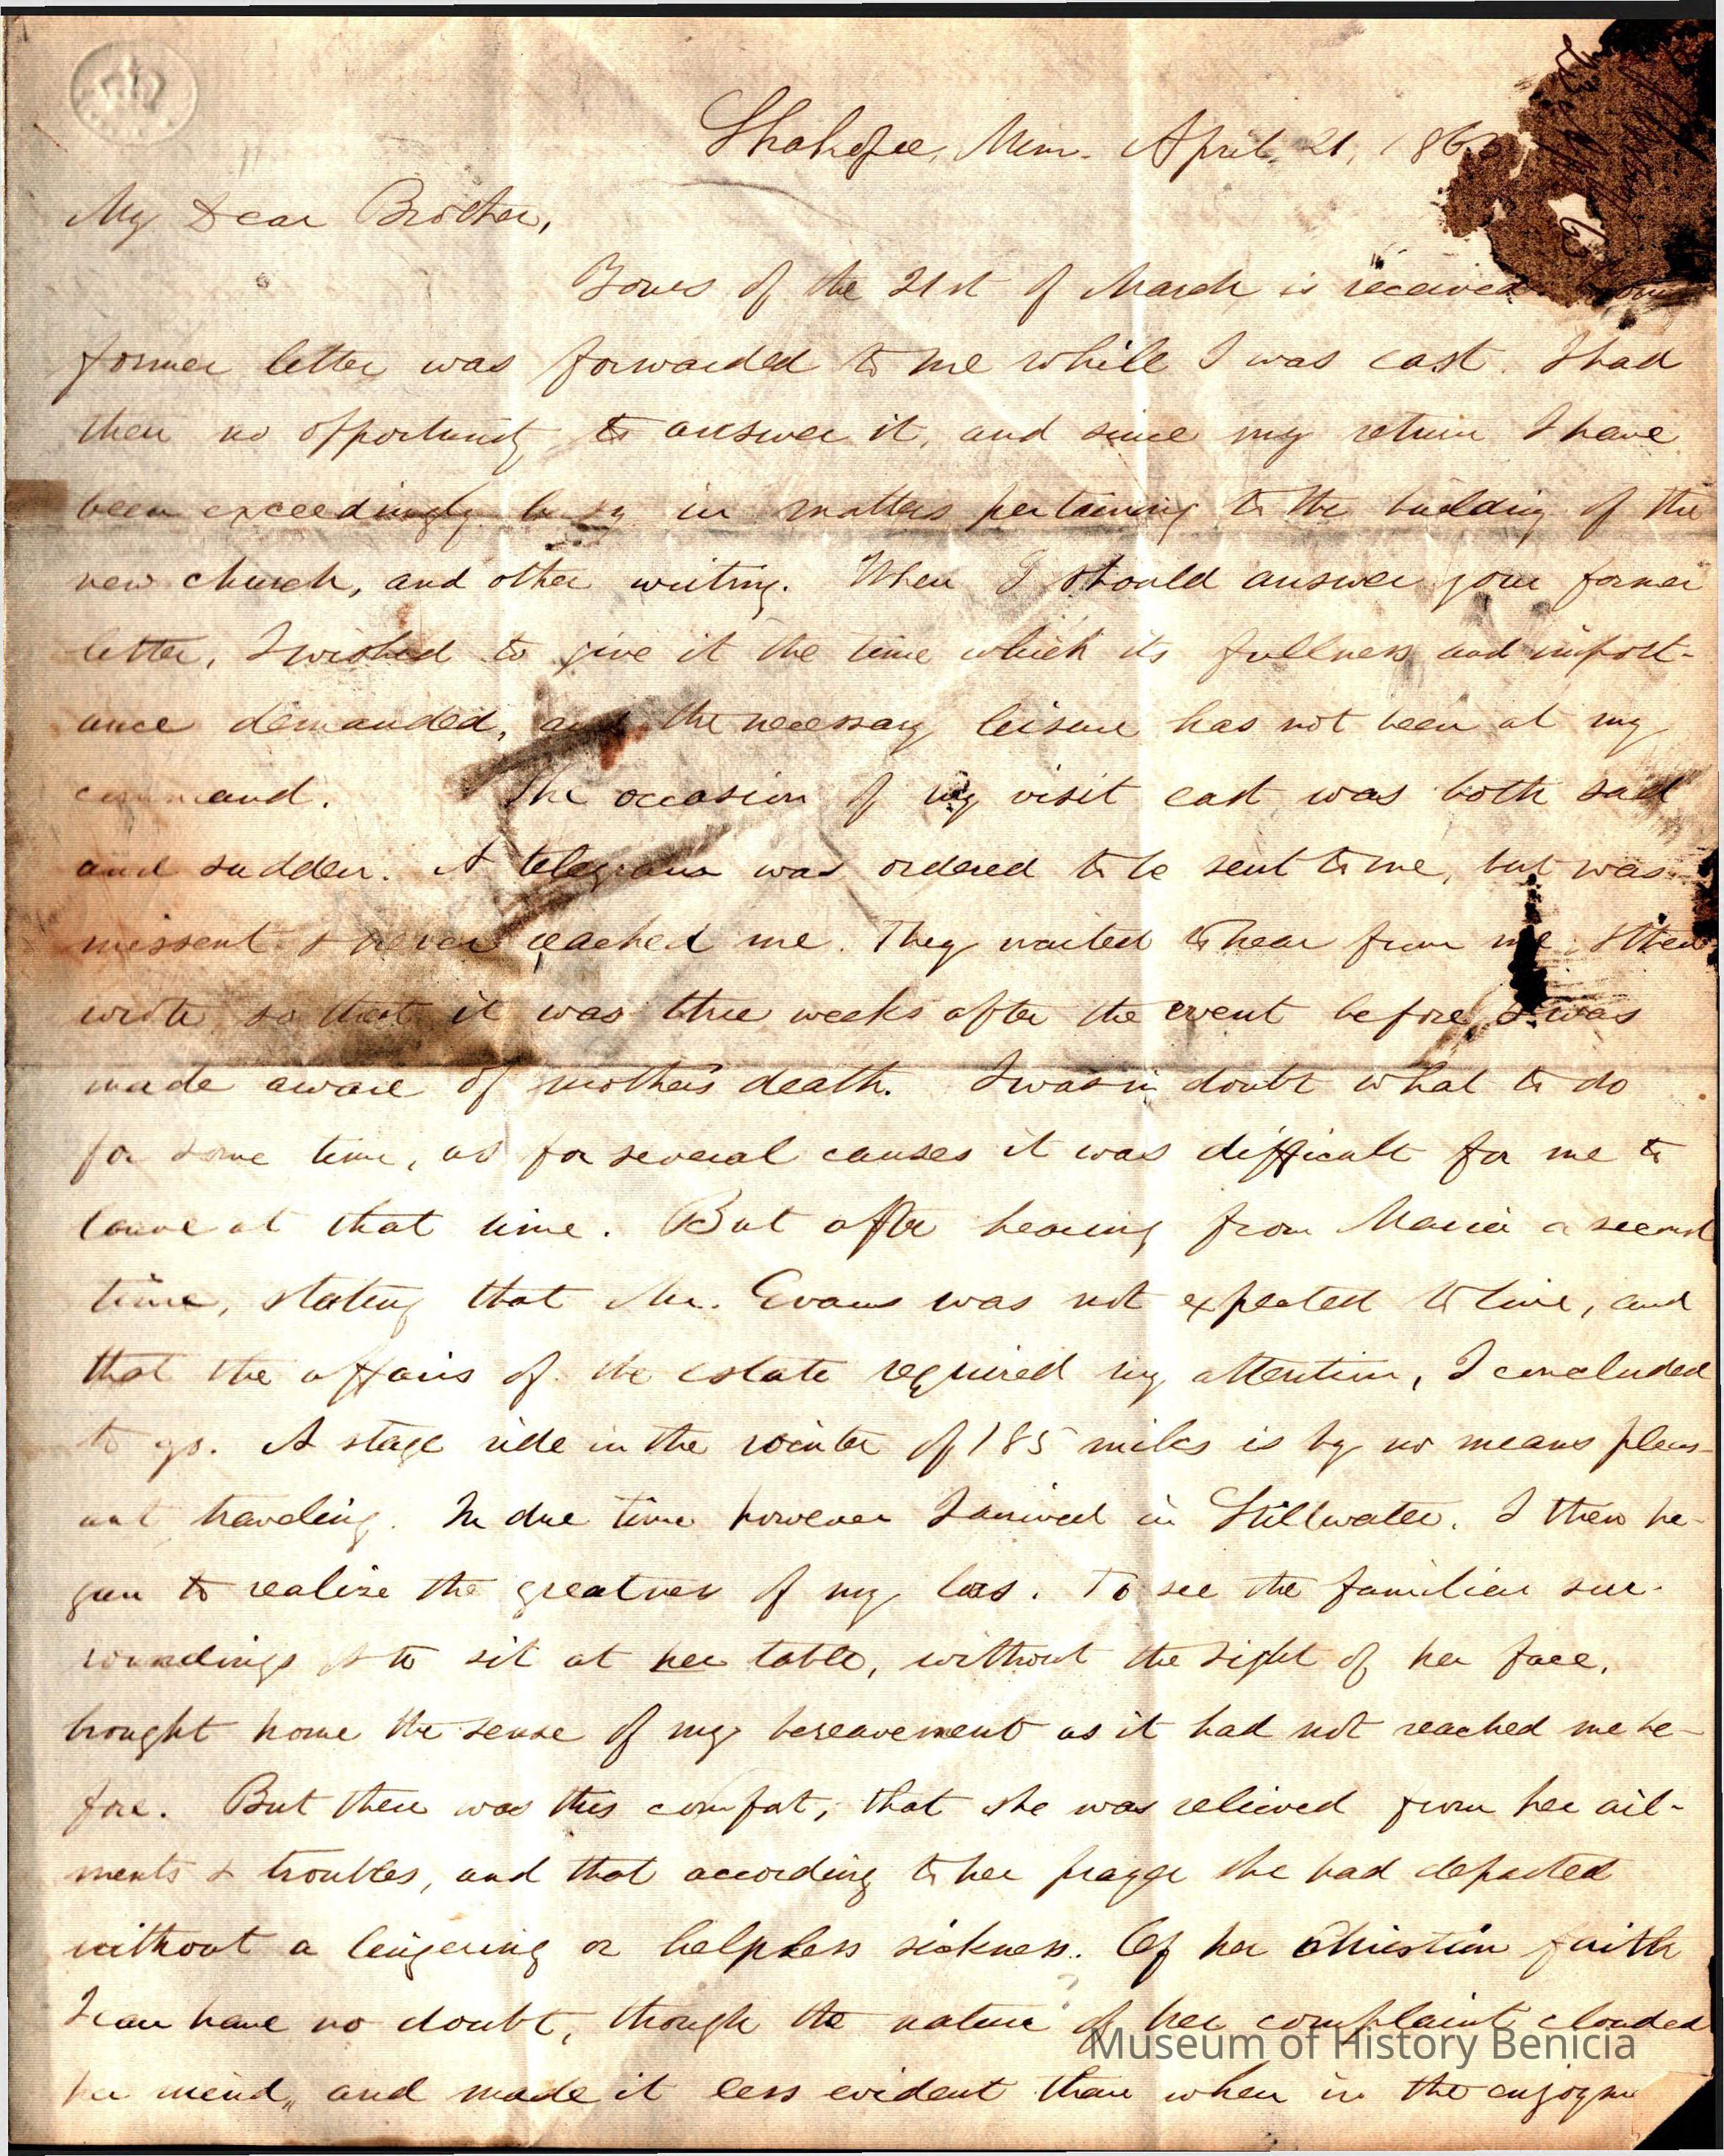 Shakopee, Minn. April 21, 186
My Dear Brother,
Yours of the 21st of March is received
former letter was forwarded to me while I was east. I had
then no opportunity to answer it, and since my return I have
been exceedingly busy in matters pertaining to the building of the
new church, and other writing. When I should answer your former
letter, I wished to give it the time which its fullness and import-
ance demanded, and the necessary leisure has not been at my
command. The occasion of my visit east was both sad
and sudden. A telegram was ordered to be sent to me, but was
missent & never reached me. They waited to hear from me & then
wrote, so that it was three weeks after the event before I was
made aware of mother's death. I was in doubt what to do
for some time, as for several causes it was difficult for me to
leave at that time. But after hearing from Maria a second
time, stating that Mr. Evans was not expected to live, and
that the affairs of the estate required my attention, I concluded
to go. A stage ride in the winter of 185 miles is by no means pleas-
ant traveling. In due time however I arrived in Stillwater. I then be-
gun to realize the greatness of my loss. To see the familiar sur-
roundings & to sit at her table, without the sight of her face,
brought home the sense of my bereavement as it had not reached me be-
fore. But there was this comfort, that she was relieved from her ail-
ments & troubles, and that according to her prayer she had departed
without a lingering or helpless sickness. Of her Christian faith
I can have no doubt, though the nature of her complaint clouded
her mind, and made it less evident than when in the enjoym
Museum of History Benicia